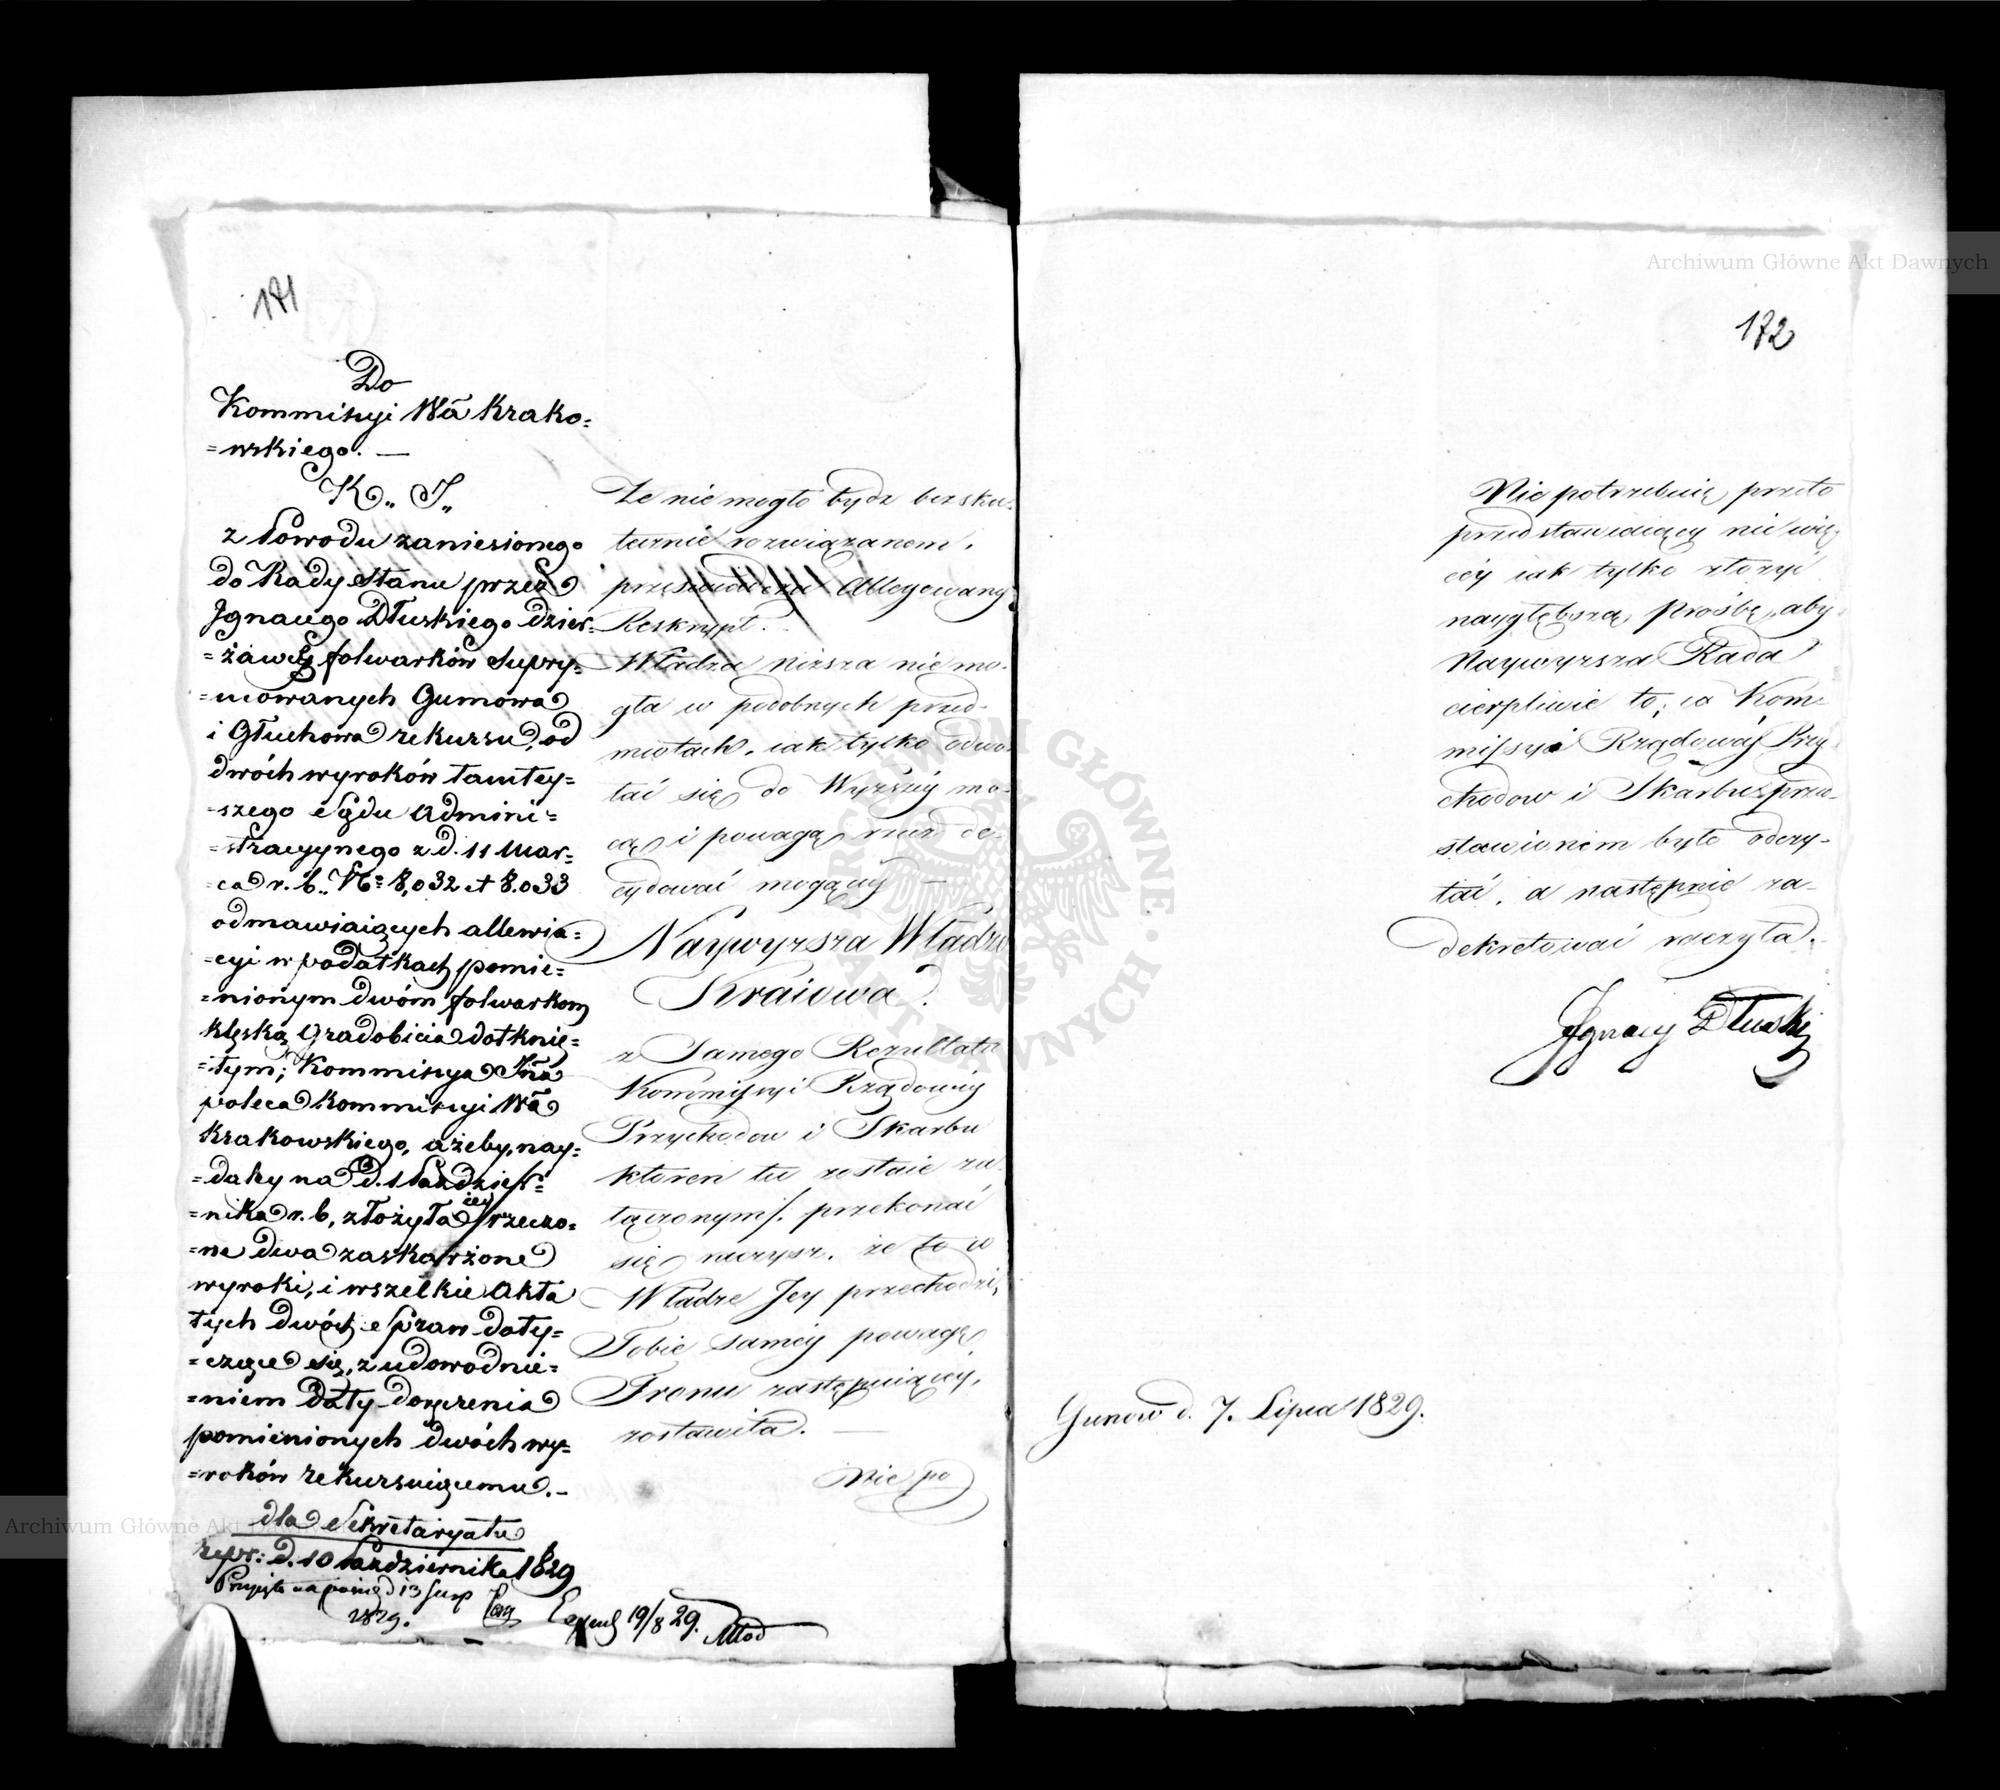 171
Do
Kommissyi Wa Krako=
=wskiego. —
K. J.
z Powodu zaniesionego
do Rady Stanu przez
Ignacego Dłuskiego dzier=
=żawcę folwarków Supry=
=mowanych Gumowa
i Głuchowa rekursu, od
dwóch wyroków tamtey=
=szego Sądu Admini=
=stracyjnego z d. 11 Mar=
=ca r. b. No 8,032 et 8.033
odmawiaiących allewia=
=cyi w podatkach pomie=
=nionym dwóm folwarkom
klęską Gradobicia dotknię=
=tym; Kommissya Jna
poleca Kommissyi Wa
Krakowskiego, ażeby, nay=
=daley na d. 1 Paździer=
=nika r. b, złożyła iey rzeczo=
=ne dwa zaskarżone
wyroki, i wszelkie Akta
tych dwóch Spraw doty=
=czące się, z udowodnie=
=niem daty doręczenia
pomienionych dwóch wy=
=roków rekursuiącemu. –
dla Sekretaryatu
repr: d. 10 Października 1829
Przyjęto na posied 13 Sierp
1829.
19/8 29.
Że nie mogło bydz bezsku=
tecznie rozwiązanem.
przeświadcza Allegowany
Reskrypt.
Władza niższa nie mo=
gła w podobnych przed=
miotach, iak tylko odwo=
łać się do Wyższey mo=
cą i powagą rzecz de=
cydować mogącey —
Naywyższa Władzo
Kraiowa!
z Samego Rezultatu
Kommissyi Rządowey
Przychodow i Skarbu
ktoren tu zostaie za=
łączonym/. przekonać
się raczysz, że to w
Władze Jey przechodzi,
Tobie samey powagę
Tronu zastępuiącey,
zostawiła. —
Nie po
Archiwum Główne Akt Dawnych
172
Nie potrzebuię przeto
przedstawiaiący nie wię=
cey iak tylko złożyć
naygłębszą prośbę, aby
Naywyższa Rada
cierpliwie to, co Kom=
missyi Rządowey Przy=
chodow i Skarbu przed=
stawionem było odczy=
tać, a następnie za=
dekretować raczyła.
Ignacy Dłuski
Gumow d. 7. Lipca 1829.
ARCHIWUM GŁÓWNE AKT DAWNYCH
Archiwum Główne Akt Dawnych